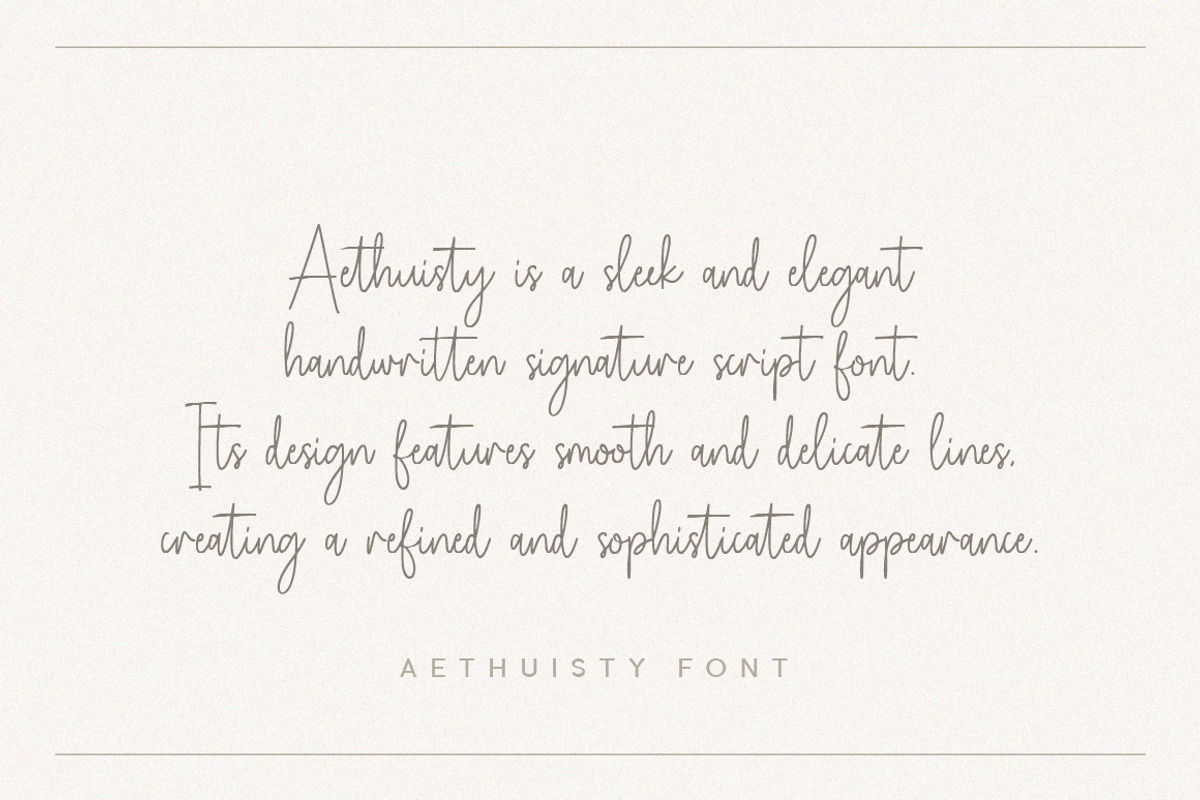 Aethuisty is a sleek and elegant
handwritten signature script font.
Its design features smooth and delicate lines,
creating a refined and sophisticated appearance.
AETHUISTY FONT